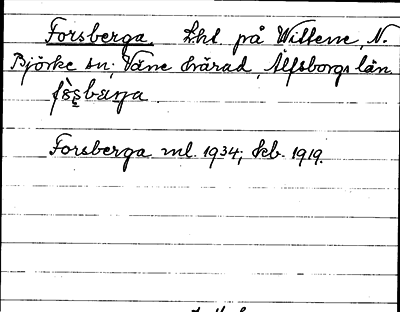 Forsberga. Lht på Wittene, N.
Björke sn; Väne härad, Älfsborgs län
Forsberga ml. 1934; kb. 1919.